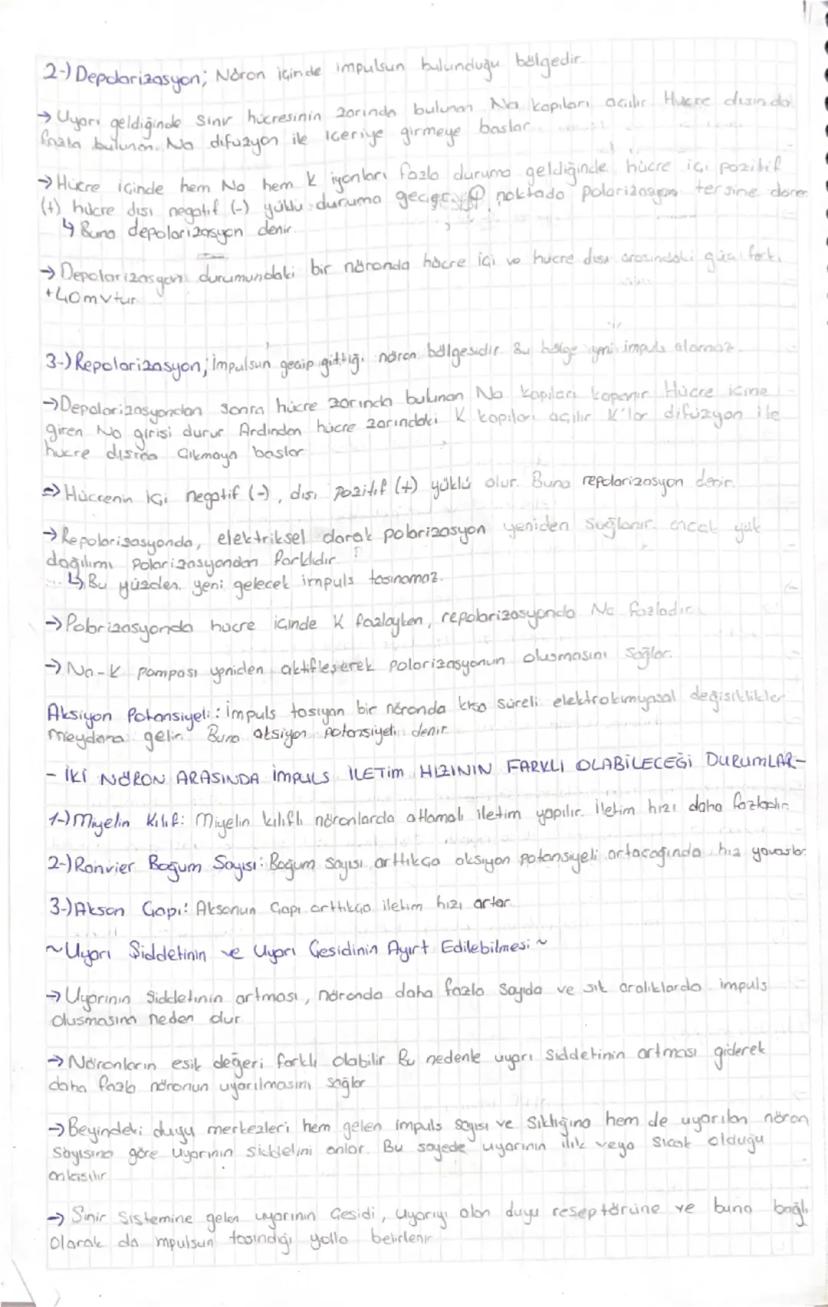 2-) Depolarizasyon; Nöron içinde impulsun bulunduğu bölgedir
→ Uyarı geldiğinde sinir hücresinin zarında bulunan Na kapıları açılır. Hücre dışında
fazla bulunan Na difüzyon ile içeriye girmeye başlar.
→ Hücre içinde hem Na hem K iyonları fazla duruma geldiğinde hücre içi pozitif
(+) hücre dışı negatif (-) yüklü duruma geçer. noktada polarizasyon tersine döner
↳ Buna depolarizasyon denir.
→ Depolarizasyon durumundaki bir nöronda hücre içi ve hücre dışı arasındaki güç farkı
+40mvtur
3-) Repolarizasyon; İmpulsun geçip gittiği nöron bölgesidir Bu bölge yeni impuls alamaz.
→ Depolarizasyondan sonra hücre zarında bulunan Na kapıları kapanır Hücre içine
giren Na girişi durur Ardından hücre zarındaki K kapıları açılır K'lar difüzyon ile
hücre dışına çıkmaya başlar
→ Hücrenin içi negatif (-), dışı pozitif (+) yüklü olur. Buna repolarizasyon denir.
→ Repolarizasyonda, elektriksel olarak polarizasyon yeniden sağlanır. ancak yük
dağılımı polarizasyondan farklıdır.
↳ Bu yüzden yeni gelecek impuls taşınamaz.
→ Polarizasyonda hücre içinde K fazlayken, repolarizasyonda Na fazladır.
→ Na-K pompası yeniden aktifleşerek polarizasyonun oluşmasını sağlar.
Aksiyon Potansiyeli: İmpuls taşıyan bir nöronda kısa süreli elektrokimyasal değişiklikler
meydana gelir. Buna aksiyon potansiyeli denir
- İKİ NÖRON ARASINDA İMPULS İLETİM HIZININ FARKLI OLABİLECEĞİ DURUMLAR-
1-) Miyelin Kılıf: Miyelin kılıflı nöronlarda atlamalı iletim yapılır. İletim hızı daha fazladır
2-) Ranvier Boğum Sayısı: Boğum sayısı arttıkça aksiyon potansiyeli artacağında hız yavaşlar.
3-) Akson Çapı: Aksonun çapı arttıkça iletim hızı artar
~ Uyarı Şiddetinin ve Uyarı Çeşidinin Ayırt Edilebilmesi ~
→ Uyarının şiddetinin artması, nöronda daha fazla sayıda ve sık aralıklarda impuls
oluşmasına neden olur
→ Nöronların eşik değeri farklı olabilir Bu nedenle uyarı şiddetinin artması giderek
daha fazla nöronun uyarılmasını sağlar
→ Beyindeki duyu merkezleri hem gelen impuls sayısı ve sıklığına hem de uyarılan nöron
sayısına göre uyarının şiddetini anlar. Bu sayede uyarının ılık veya sıcak olduğu
anlaşılır
→ Sinir sistemine gelen uyarının çeşidi, uyarıyı alan duyu reseptörüne ve buna bağlı
olarak da mpulsun taşındığı yolla belirlenir